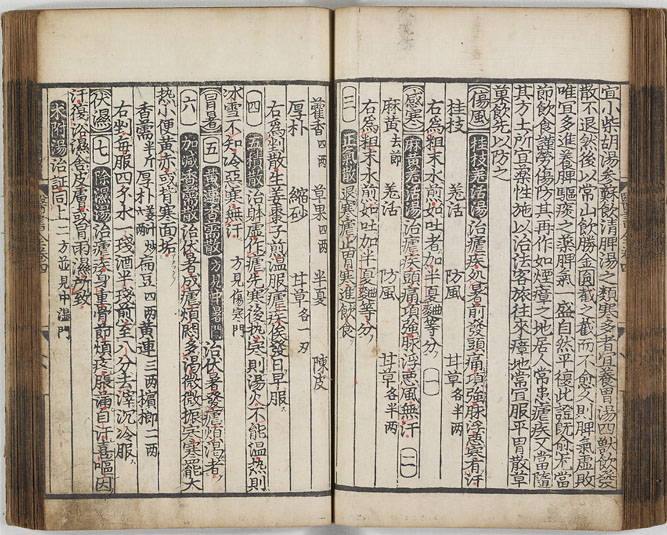 宜小柴胡湯參蘇飲清脾湯之類寒多者宜養胃湯四獸飲發
散不退然後以常山飲勝金圓截之截而不愈久則脾氣虛敗
唯宜多進養脾驅痰之藥脾氣一盛自然平復此證旣愈尤當
節飲食謹勞傷防其再作如煙瘴之地居人常患瘧疾又當隨
其方土所宜性施以治法客旅往來瘴地常宜服平胃散草
菓飲先以防之
傷風 桂枝羌活湯 治瘧疾處暑前發頭痛項強脉浮惡寒有汗
桂枝 羌活 防風 甘草各半两
右爲粗末水煎如吐者加半夏麯等分 一
感寒 麻黄羌活湯 治瘧疾頭痛項強脉浮惡風無汗 二
麻黄去節 羌活 防風 甘草各半两
右爲粗末水煎如吐加半夏麯等分
三 正氣散 退寒瘧止胃寒進飲食
藿香四两 草果四两 半夏 陳皮
厚朴 縮砂 甘草各一刄
右爲散生姜棗子煎溫服瘧疾後發日早服
四 五積散 治躰虛作瘧先寒後熱寒則湯火不能溫熱則
冰雪不知冷惡寒無汗 方見傷寒門
冒暑 五 香薷散 方見中暑門 治伏暑發瘧煩渴者
六 加減香薷散 治伏暑成瘧煩悶多湯微微振寒寒罷大
熱小便黄赤或背寒面垢
香薷半斤 厚朴 炒 扁豆四两 黄連三两 檳榔二两
右剉每服四水一琖酒半琖煎至八分去滓沉冷服
伏濕 七 除濕湯 治瘧疾身重骨節煩疼脹滿自汗善嘔因
汗後浴濕舍皮膚或冒雨濕所致
朮附湯 治證同上 二方並見中濕門